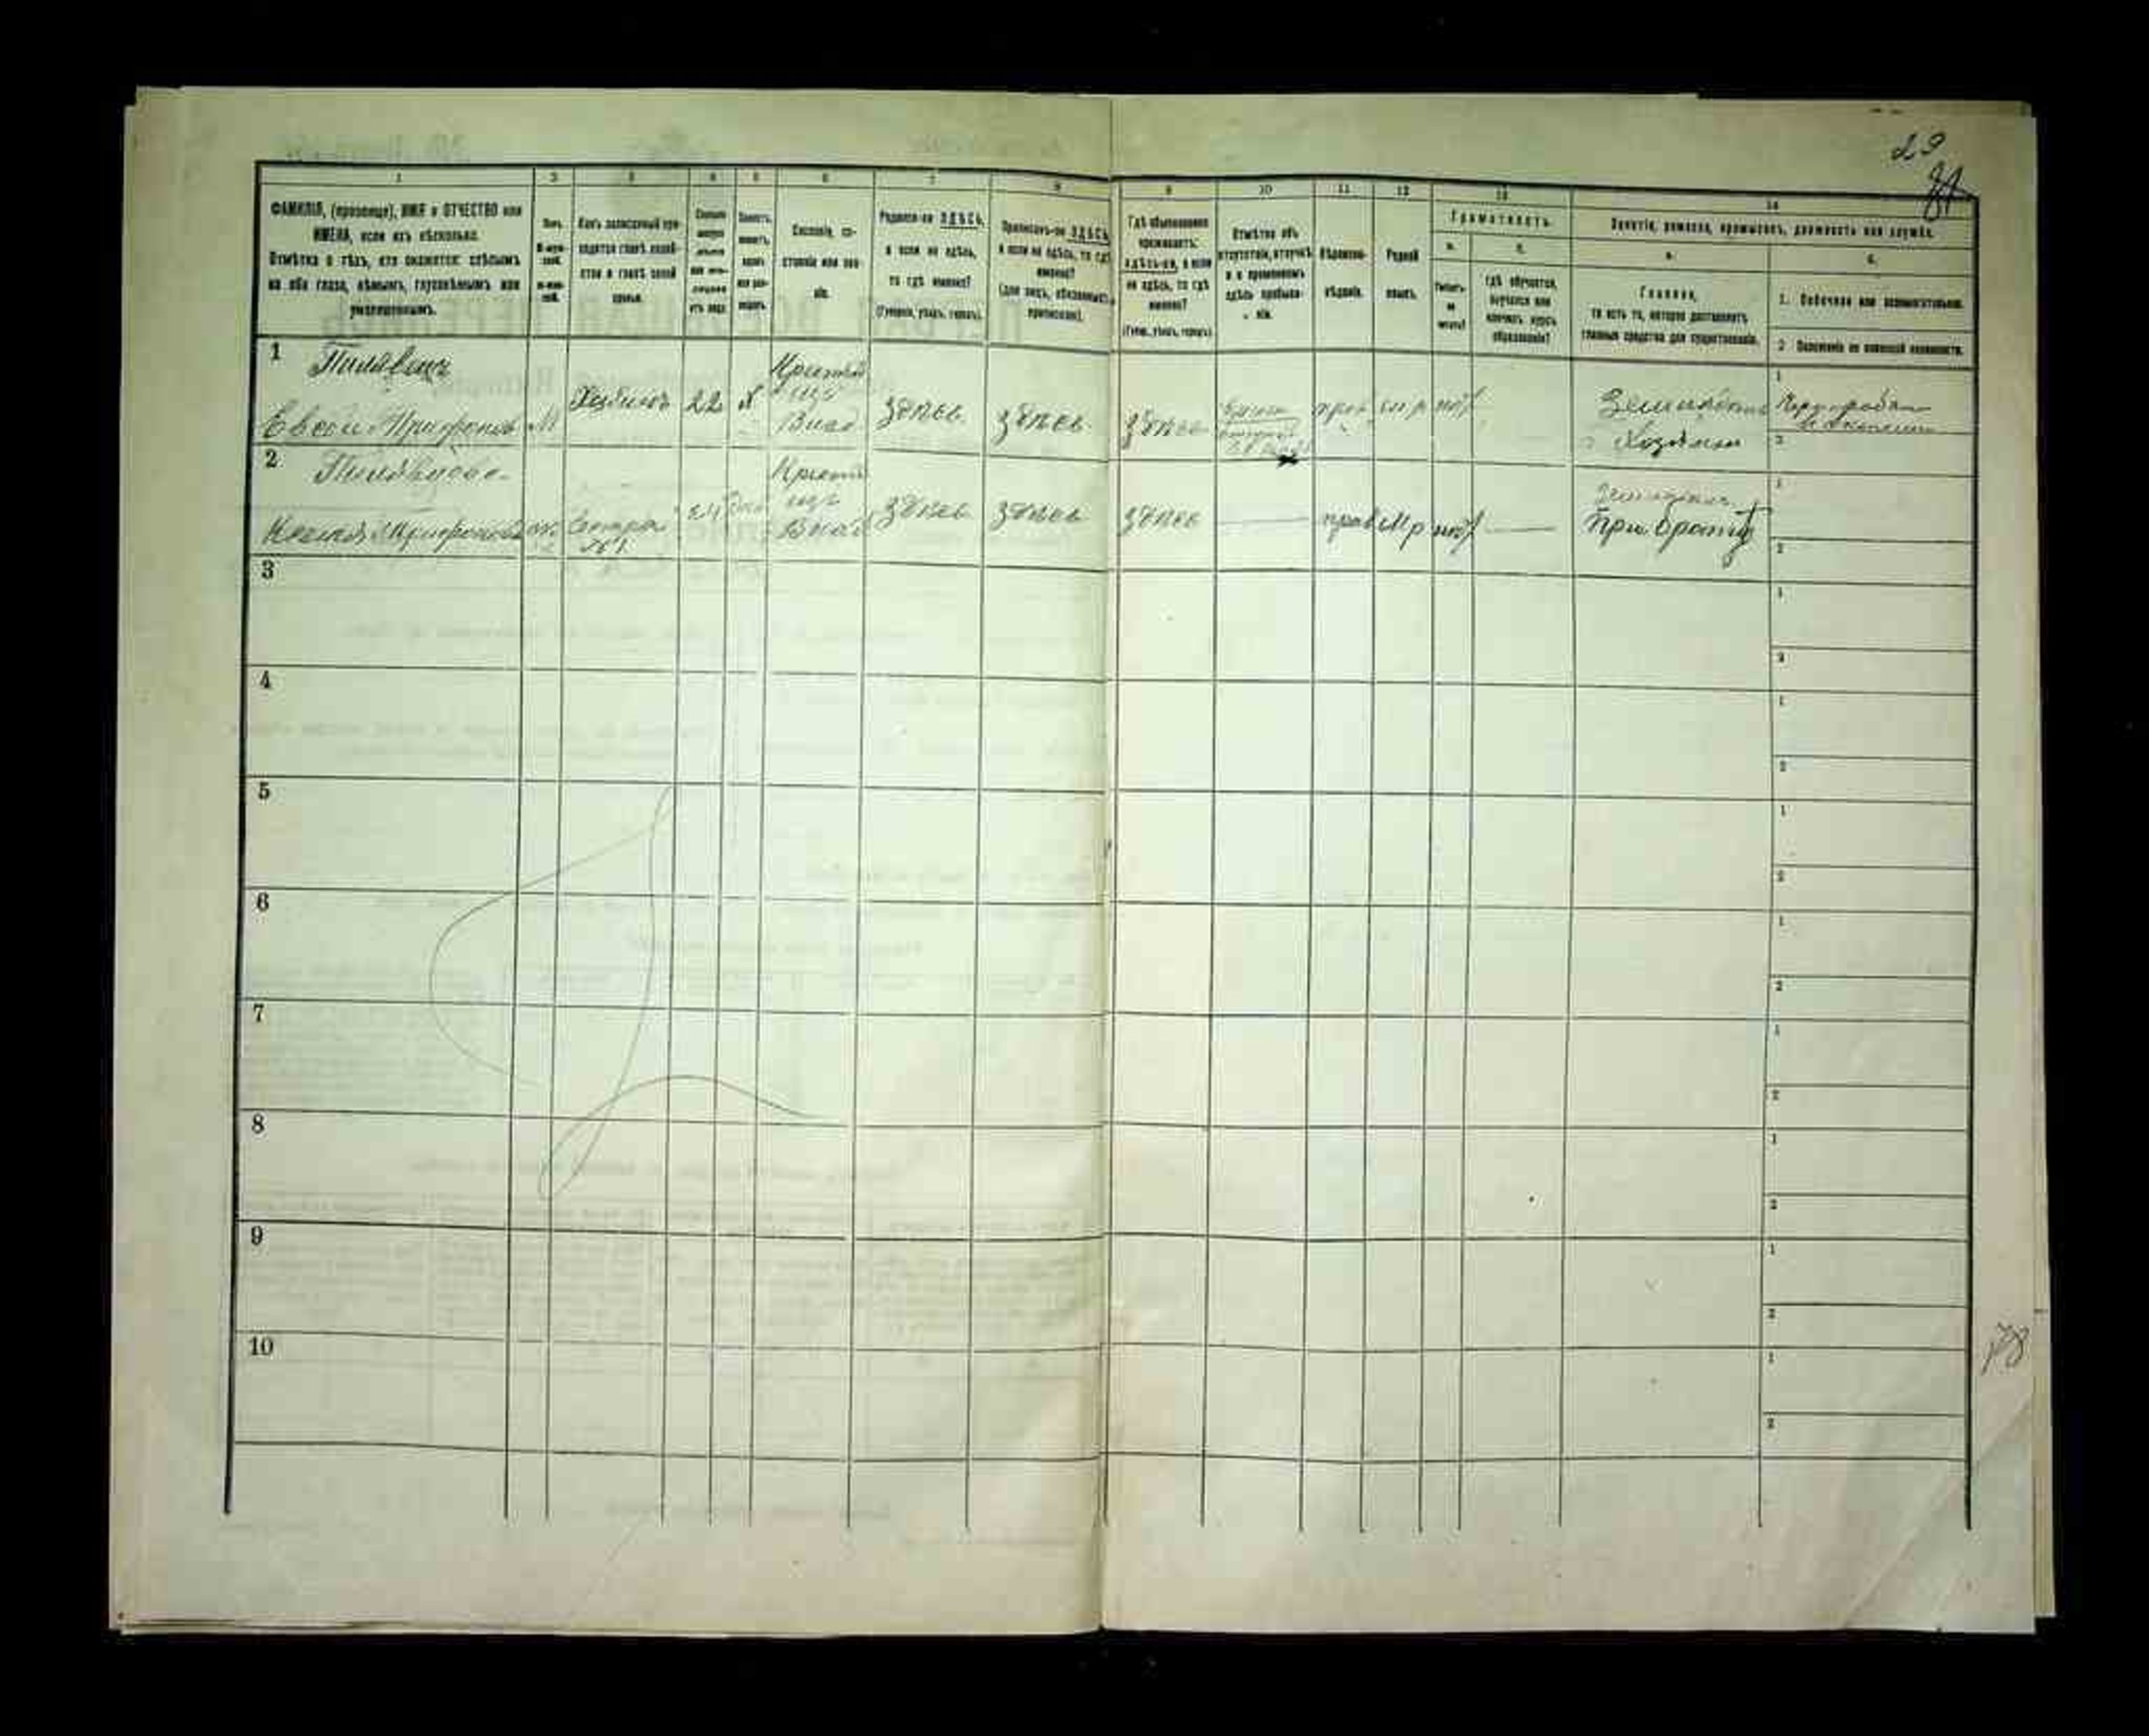 29
81
1
2
3
4
5
6
7
8
9
10
11
12
13
14
ФАМИЛІЯ, (прозвище), ИМЯ и ОТЧЕСТВО или
ИМЕНА, если ихъ нѣсколько.
Отмѣтка о тѣхъ, кто окажется: слѣпымъ
на оба глаза, нѣмымъ, глухонѣмымъ или
умалишеннымъ.
Полъ.
М-муж-
ской.
Ж-жен-
скій.
Какъ записанный при-
ходится главѣ хозяй-
ства и главѣ своей
семьи.
Сколько
минуло
лѣтъ
или мѣ-
сяцевъ
отъ роду.
Холостъ,
женатъ,
вдовъ
или раз-
веденъ.
Сословіе, со-
стояніе или зва-
ніе.
Родился-ли ЗДѢСЬ,
а если не здѣсь,
то гдѣ именно?
(Губернія, уѣздъ, городъ).
Приписанъ-ли ЗДѢСЬ,
а если не здѣсь, то гдѣ
именно?
(для лицъ, обязанныхъ
припискою).
Гдѣ обыкновенно
проживаетъ:
здѣсь-ли, а если
не здѣсь, то гдѣ
именно?
(Губер., уѣздъ, городъ).
Отмѣтка объ
отсутствіи, отлучкѣ
и о временномъ
здѣсь пребыва-
ніи.
Вѣроиспо-
вѣданіе.
Родной
языкъ.
Грамотность.
а.
б.
Умѣетъ-
ли
читать?
гдѣ обучается,
обучался или
кончилъ курсъ
образованія?
Занятіе, ремесло, промыселъ, должность или служба.
а.
б.
Главное,
то есть то, которое доставляетъ
главныя средства для существованія.
1. Побочное или вспомогательное.
2. Положеніе по воинской повинности.
1
Евсей Трифоновъ
М
Хозяинъ
22
Х
изъ
Влад
здѣсь
здѣсь
здѣсь
прав
м р
нѣт
Хозяинъ
1
2
2
Трифонова
Сестра
№1
24
изъ
Влад
здѣсь
здѣсь
здѣсь
прав
мр
нѣт
При братѣ
1
2
3
1
2
4
1
2
5
1
2
6
1
2
7
1
2
8
1
2
9
1
2
10
1
2
78